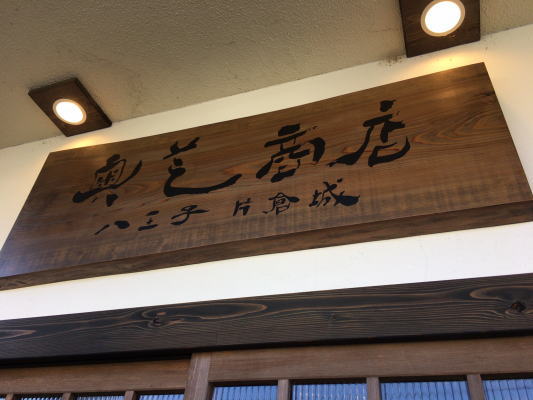 奥芝商店
八王子 片倉城